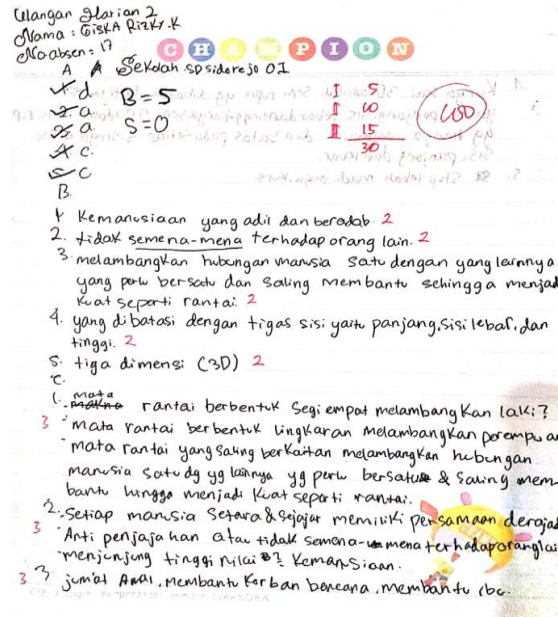 Ulangan Harian 2
Nama : GISKA RIZKY.K
No absen : 17
CHAMPION
A A Sekolah SD sidorejo 01
1. d B = 5 I 5
2. a S = 0 II 10 100
3. a III 15
4. c. 30
5. C
B.
1. Kemanusiaan yang adil dan beradab. 2
2. tidak semena-mena terhadap orang lain. 2
3. melambangkan hubungan manusia satu dengan yang lainnya
yang perlu bersatu dan saling membantu sehingga menjadi
kuat seperti rantai. 2
4. yang dibatasi dengan tigas sisi yaitu panjang, sisi lebar, dan
tinggi. 2
5. tiga dimensi (3D) 2
C.
1. mata rantai berbentuk segi empat melambangkan laki?
3 mata rantai berbentuk lingkaran melambangkan perempuan
mata rantai yang saling berkaitan melambangkan hubungan
manusia satu dg yg lainnya yg perlu bersatu & saling mem-
bantu hingga menjadi kuat seperti rantai.
2. Setiap manusia setara & sejajar memiliki persamaan deraja
3 Anti penjajahan atau tidak semena-mena terhadap orang lai
menjunjung tinggi nilai? Kemanusiaan.
3 3 jum'at Amal, membantu korban bencana, membantu ibu.